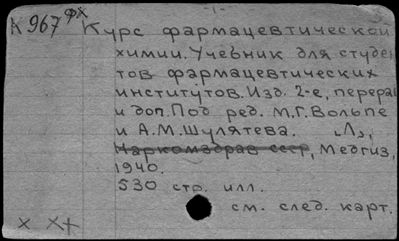 К 967 ФХ Курс фармацевтической
химии. Учебник для студен
тов фармацевтических
институтов. Изд. 2-е, перераб
и доп. Под ред. М.Г. Вольпе
и А.М. Шулятева. Л.,
Наркомздрав СССР, Медгиз,
1940.
530 стр. илл.
см. след. карт.
х хх